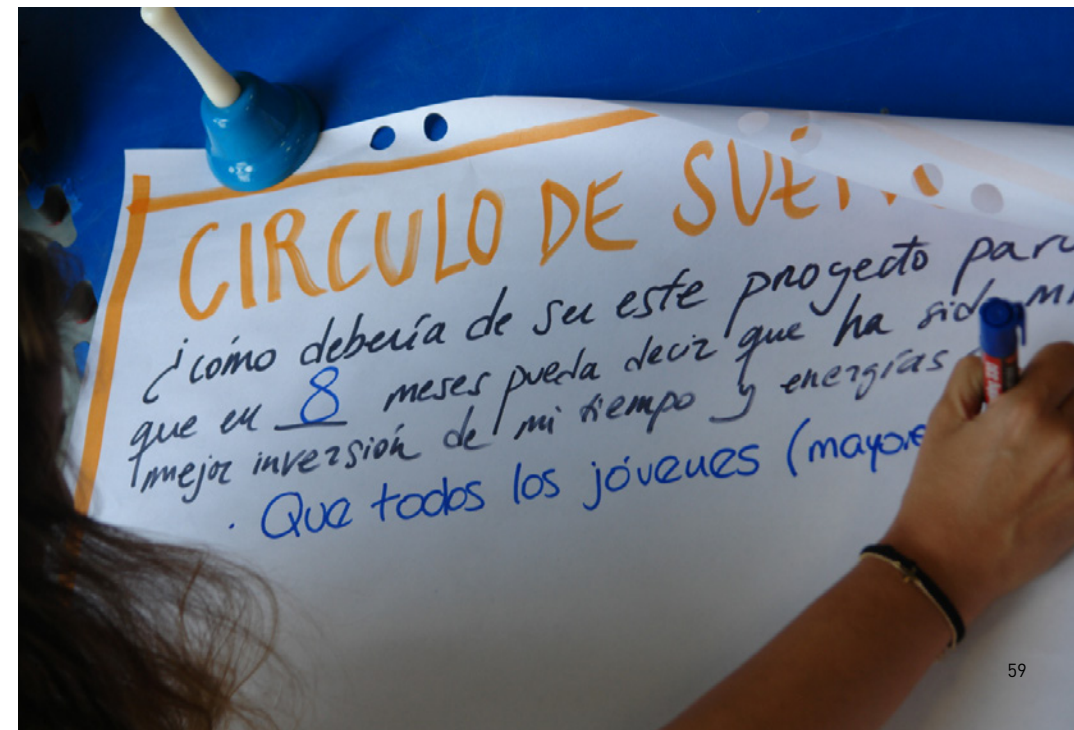 CIRCULO DE
¿cómo debería de ser este proyecto para
que en 8 meses pueda decir que ha sido mi
mejor inversión de mi tiempo y energías
· Que todos los jóvenes (mayore
59